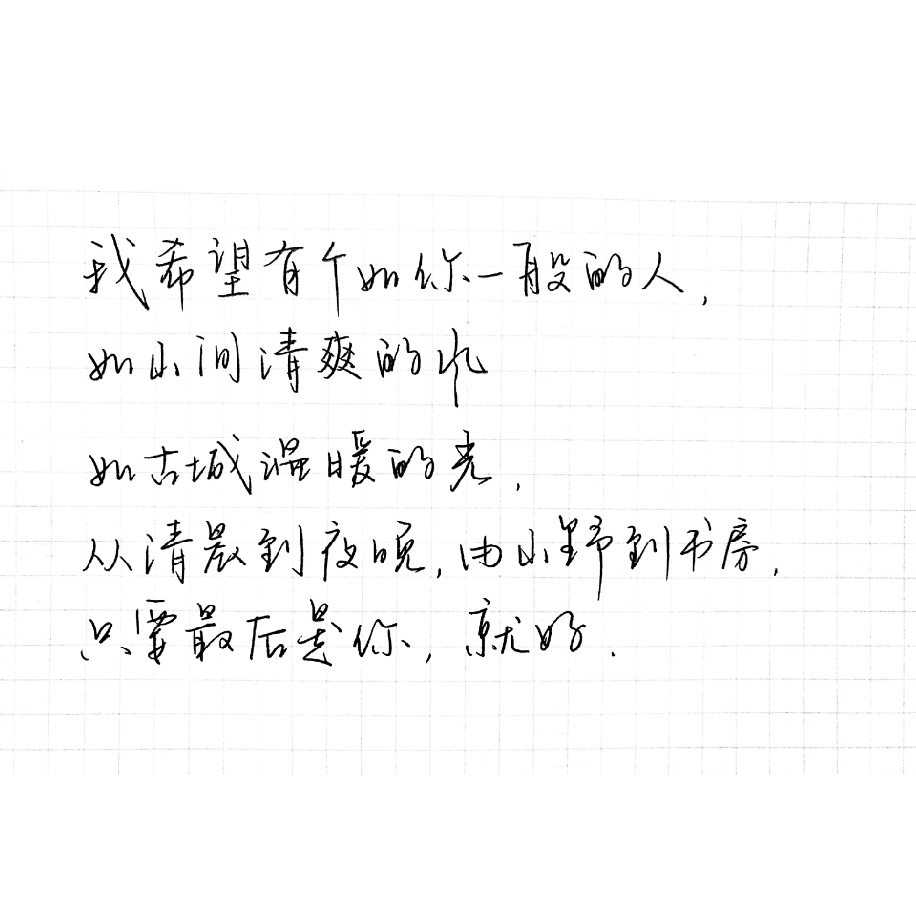 我希望有个如你一般的人,
如山间清爽的
如古城温暖的光,
从清晨到夜晚,由山野到书房,
只要最后是你,就好.